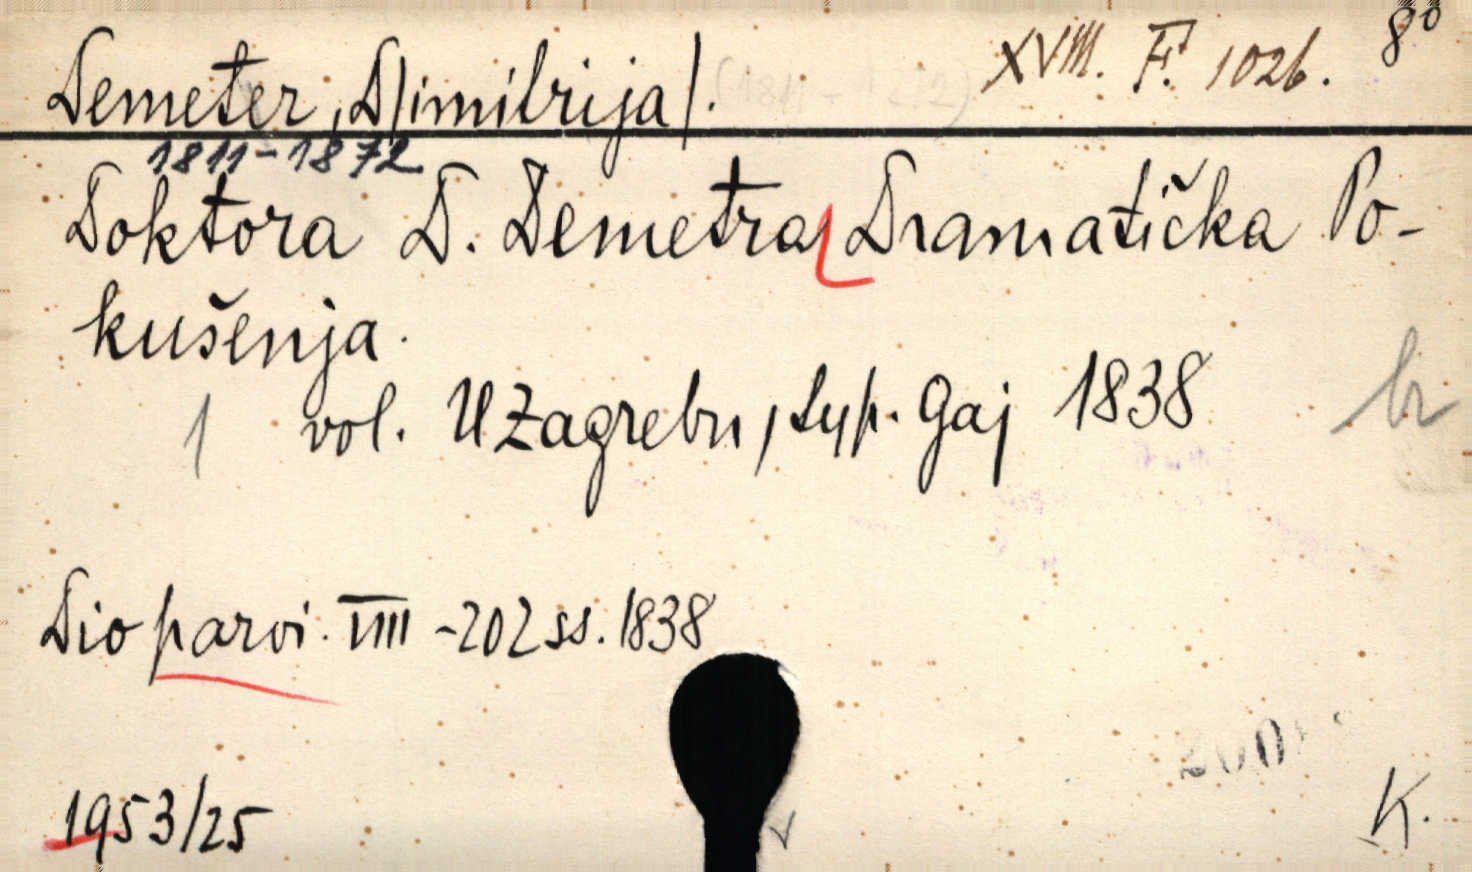 Demeter, D/imitrija/. (1811-1872) XVIII. F. 1026. 8º
1811-1872
Doktora D. Demetra Dramatička Po-
kušenja.
1 vol. U Zagrebu, typ. Gaj 1838 br
Dio parvi. VIII -202 ss. 1838
1953/25 K.